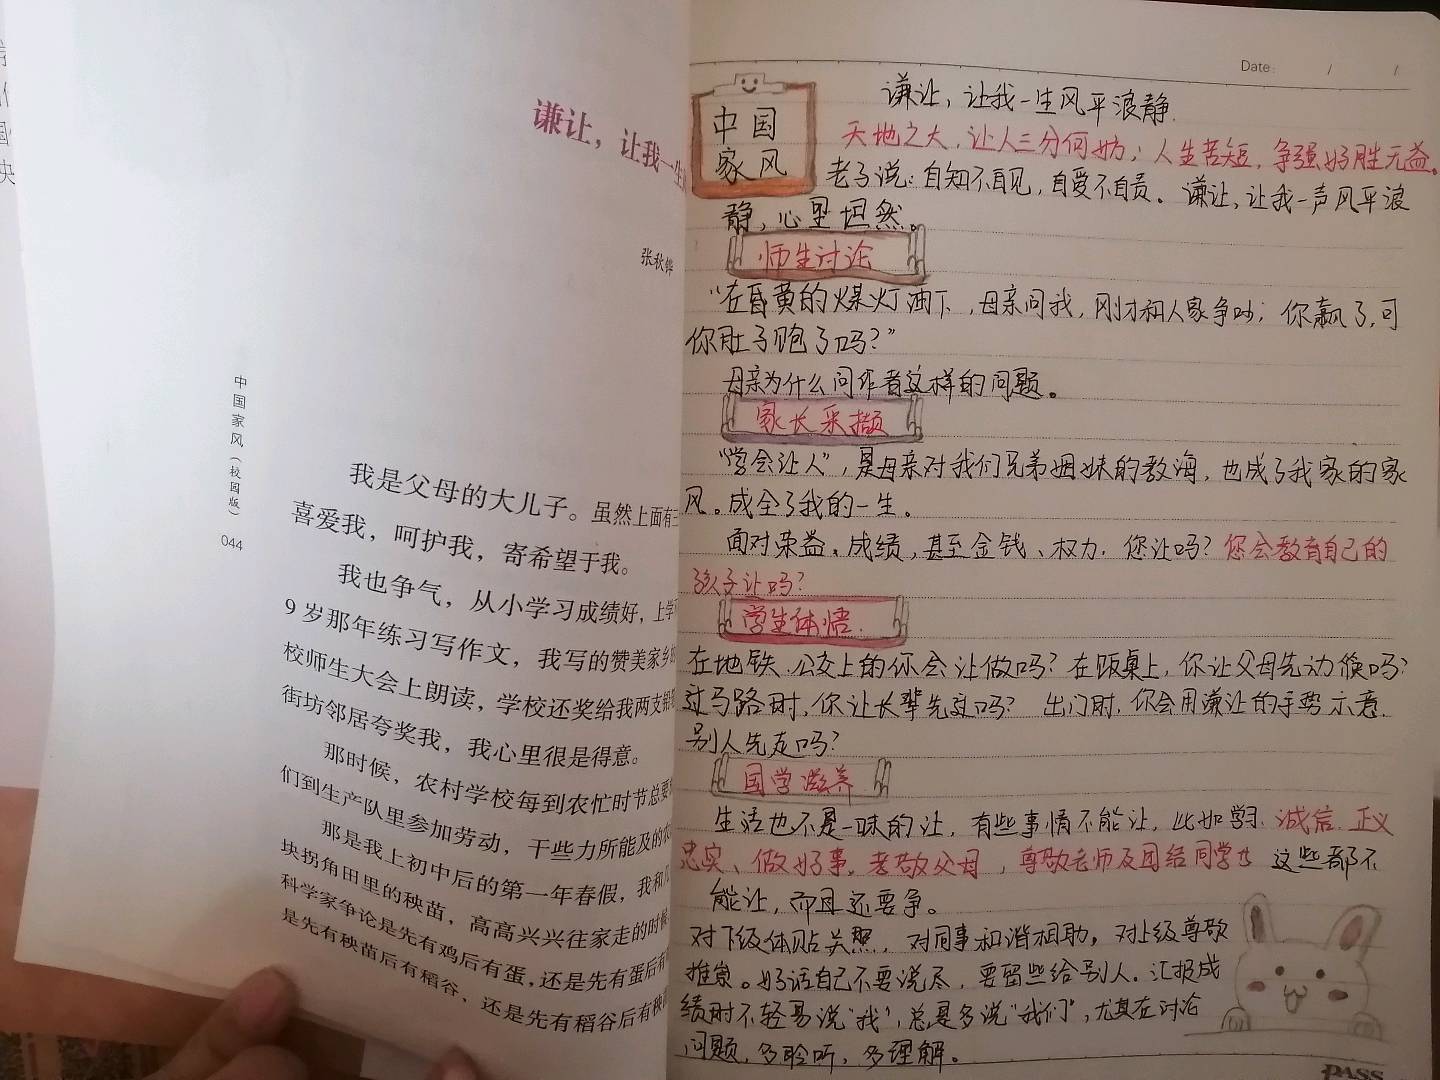 谦让，让我一生
张秋铧
中国家风（校园版）
044
我是父母的大儿子。虽然上面有三
喜爱我，呵护我，寄希望于我。
我也争气，从小学习成绩好，上学
9岁那年练习写作文，我写的赞美家乡
校师生大会上朗读，学校还奖给我两支铅
街坊邻居夸奖我，我心里很是得意。
那时候，农村学校每到农忙时节总要
们到生产队里参加劳动，干些力所能及的农
那是我上初中后的第一年春假，我和
块拐角田里的秧苗，高高兴兴往家走的时候
科学家争论是先有鸡后有蛋，还是先有蛋后有
是先有秧苗后有稻谷，还是先有稻谷后有秧
Date: / /
中国
家风
谦让，让我一生风平浪静.
天地之大，让人三分何妨；人生苦短，争强好胜无益。
老子说：自知不自见，自爱不自贵。谦让，让我一声风平浪
静，心里坦然。
师生讨论
“在昏黄的煤灯油下，母亲问我，刚才和人家争吵；你赢了，可
你肚子饱了吗？”
母亲为什么问作者这样的问题。
家长采撷
“学会让人”，是母亲对我们兄弟姐妹的教海，也成了我家的家
风。成全了我的一生。
面对荣益、成绩，甚至金钱、权力，您让吗？您会教育自己的
孩子让吗？
学生体悟.
在地铁、公交上的你会让做吗？在饭桌上，你让父母先动筷吗？
过马路时，你让长辈先过吗？出门时，你会用谦让的手势示意
别人先走吗？
国学滋养
生活也不是一味的让，有些事情不能让，比如学习、诚信、正义
忠实、做好事、孝敬父母，尊敬老师及团结同学 这些都不
能让，而且还要争。
对下级体贴关照，对同事和谐相助，对上级尊敬
推崇。好话自己不要说尽，要留些给别人。汇报成
绩时不轻易说“我”，总是多说“我们”，尤其在讨论
问题，多聆听，多理解。
PASS